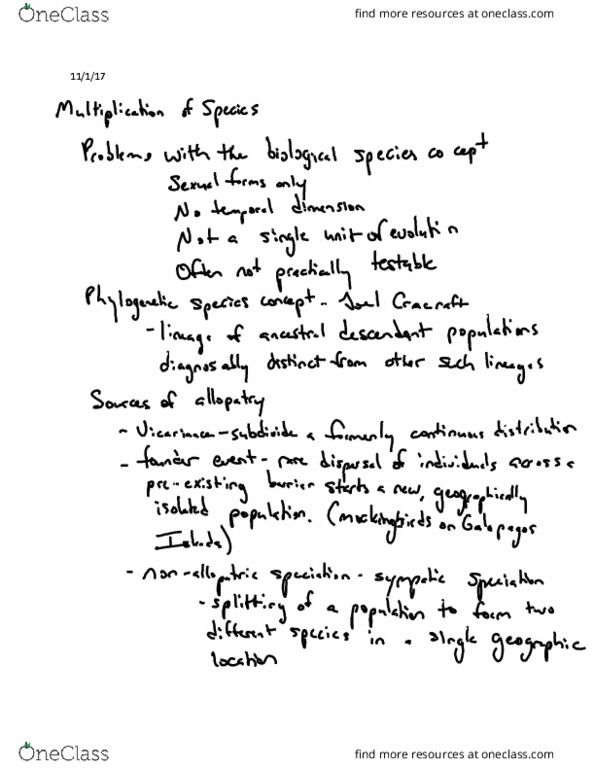 OneClass
find more resources at oneclass.com
11/1/17
Multiplication of Species
Problems with the biological species co cept
Sexual forms only
No temporal dimension
Not a single unit of evolution
Often not practially testable
Phylogenetic species concept - Joel Cracraft
- lineage of ancestral descendant populations
diagnosably distinct from other such lineages
Sources of allopatry
- Vicariance - subdivide a formerly continuous distribution
- founder event - rare dispersal of individuals across a
pre-existing barrier starts a new, geographically
isolated population. (mockingbirds on Galapagos
Islands)
- non-allopatric speciation - sympatic speciation
- splitting of a population to form two
different species in a single geographic
location
OneClass
find more resources at oneclass.com